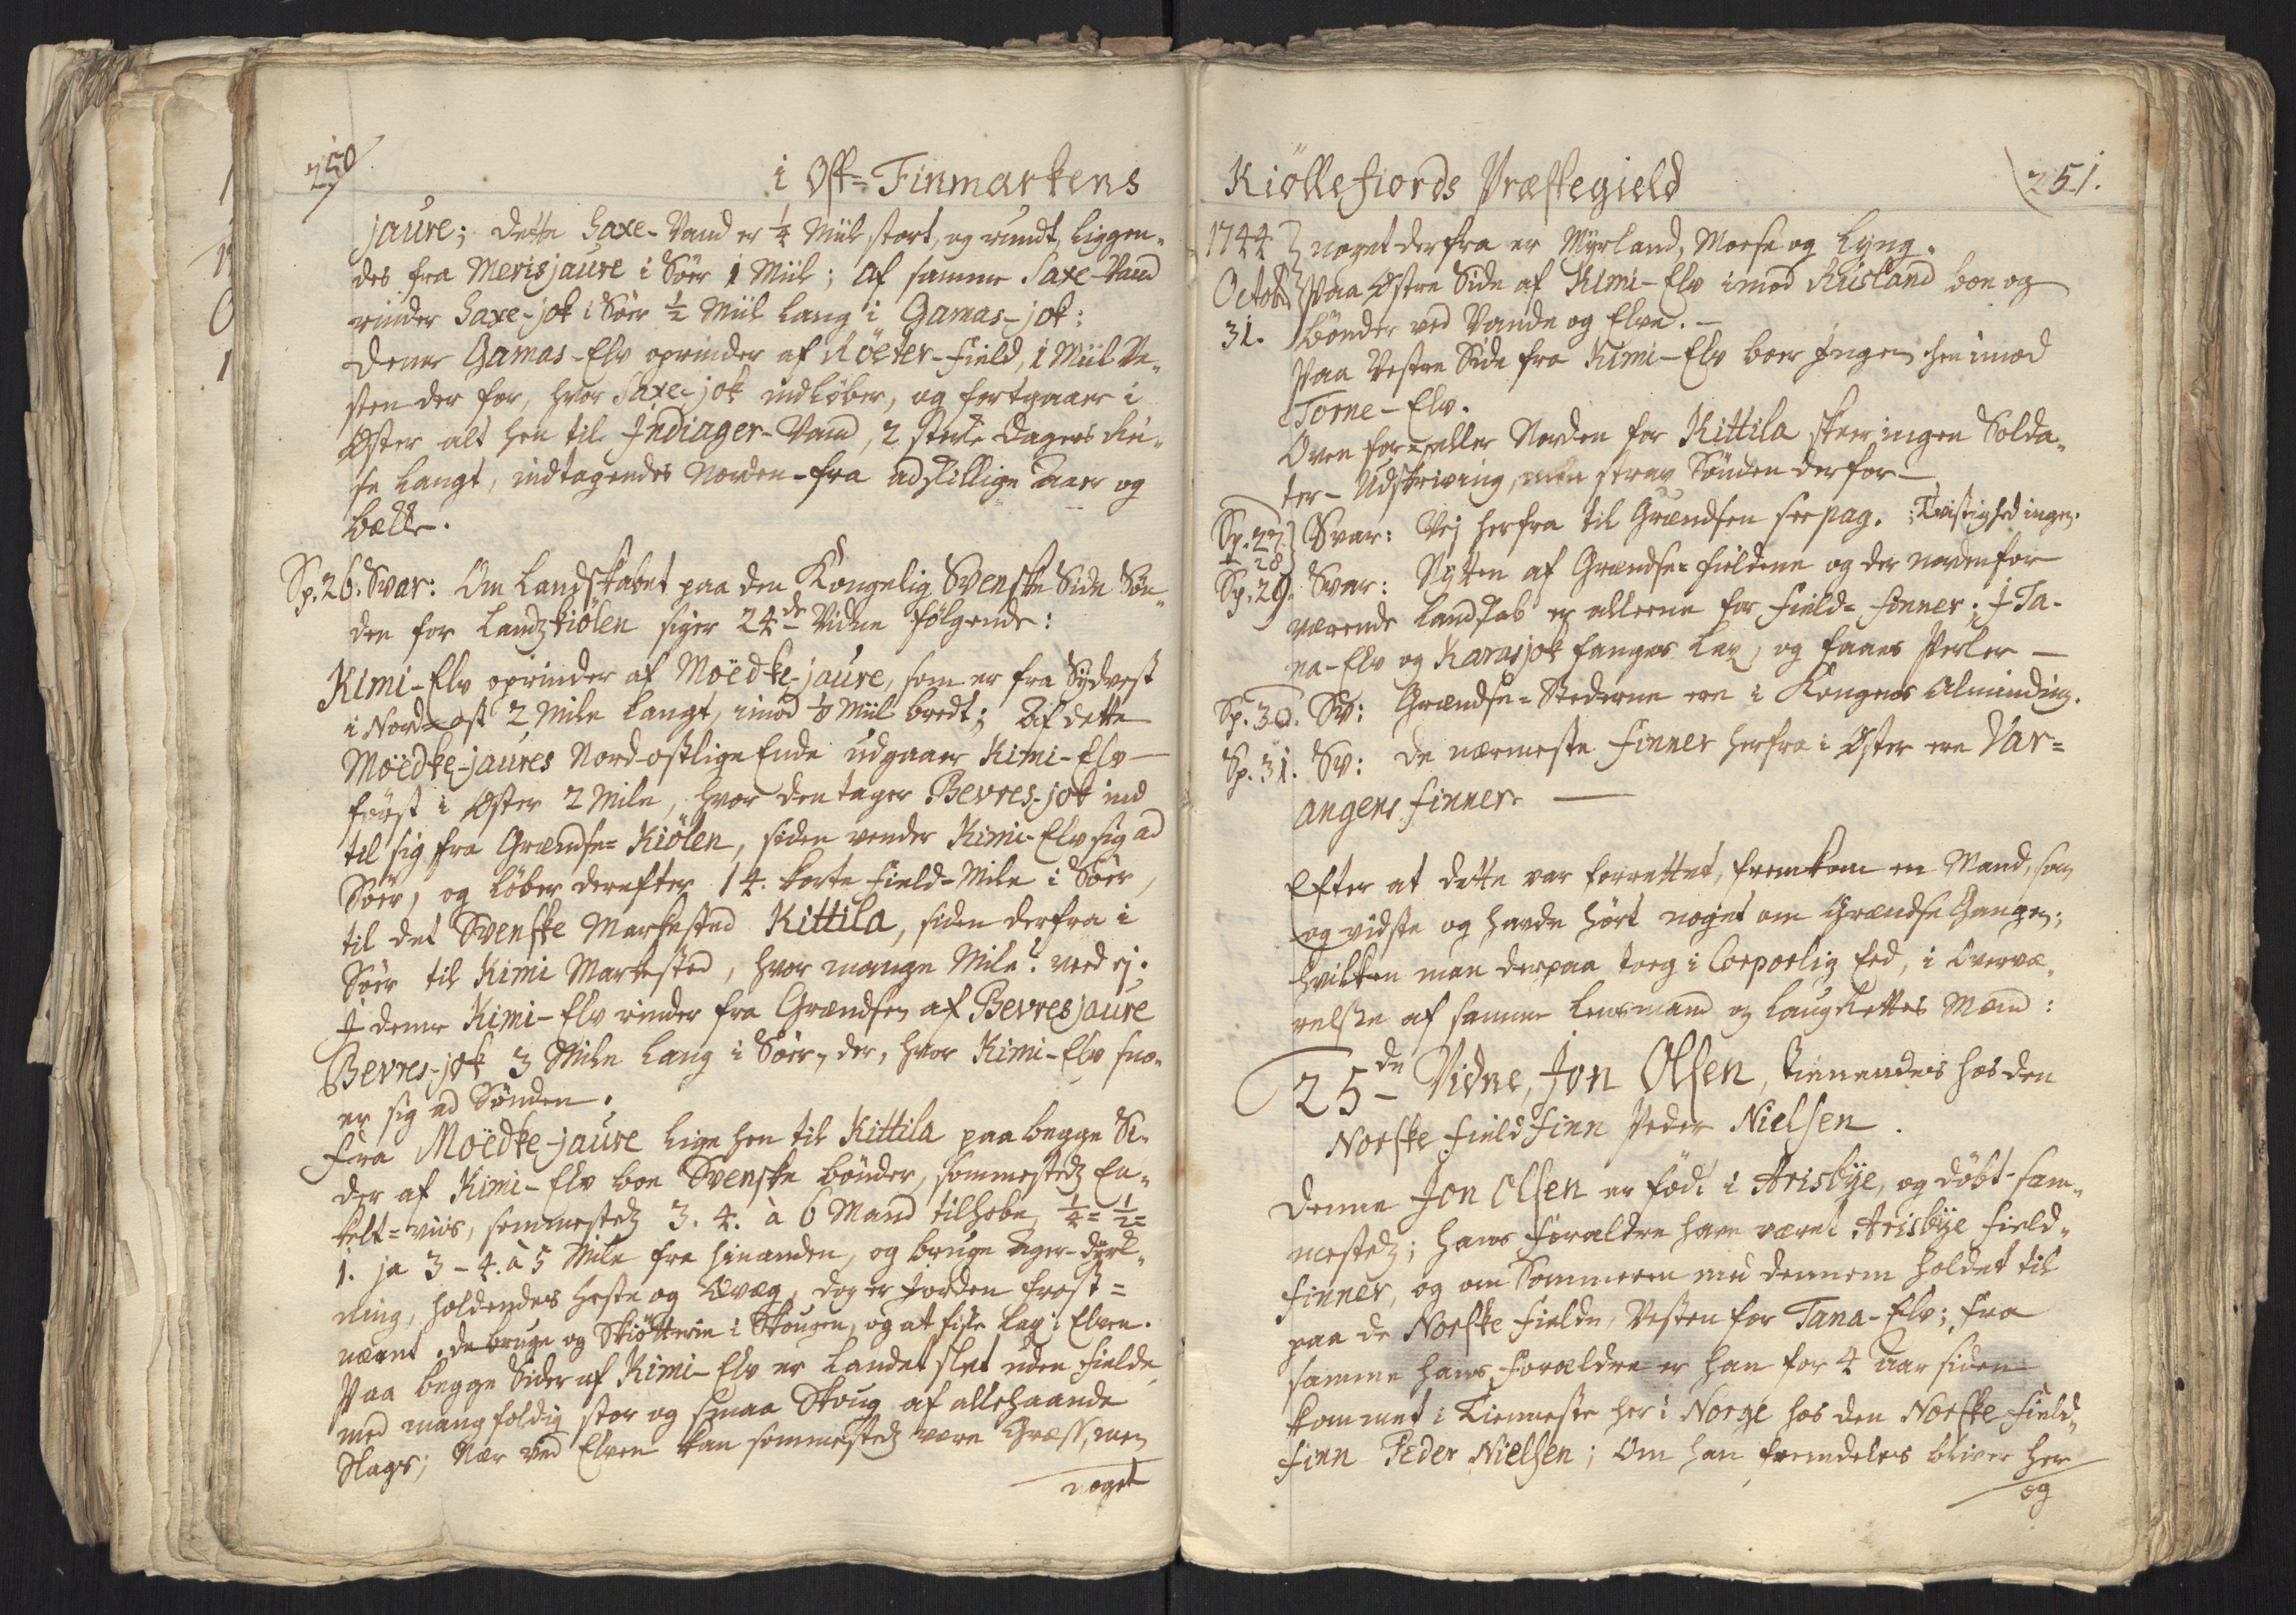 250
i Ost-Finmarkens
jaure; dette Saxe-Vand er 1/4 Miil stort, og rundt, liggen-
des fra Merisjaure i Söer 1 Miil; af samme Saxe-Vand
rinder Saxe-jok i Söer 1/2 Miil lang i Gamas-jok:
denne Gamas-Elv oprinder af Röeter-Field, 1 Miil Ve-
sten der for, hvor Saxe-jok indløber, og fortgaaer i
Øster alt hen til Indiager-Vand, 2 sterke Dagers Rei-
se langt, indtagendes Norden-fra adskillige Aaer og
Bække.
Sp. 26. Svar: Om Landskabet paa den Kongelig Svenske Side Sön-
den for Landzkiölen siger 24de Vidne følgende:
Kimi-Elv oprinder af Moëdke-jaure, som er fra Sydvest
i Nord-ost 2 Mile langt, imod 1/8 Miil bredt; Af dette
Moëdke-jaures Nord-ostlige Ende udgaaer Kimi-Elv
først i Øster 2 Mile, hvor den tager Bevres-jok ind
til sig fra Grændse-Kiölen, siden vender Kimi-Elv sig ad
Söer, og løber derefter 14. korte Field-Mile i Söer,
til det Svenske Markested Kittila, siden derfra i
Söer til Kimi Markested, hvor mange Mile? veed ej.
I denne Kimi-Elv rinder fra Grændsen af Bevresjaure
Bevres-jok 3 Mile lang i Söer, der, hvor Kimi-Elv sno-
er sig ad Sönden.
Fra Moëdke-jaure lige hen til Kittila paa begge Si-
der af Kimi-Elv boe Svenske bönder, sommestedz En-
kelt-viis, sommestedz 3. 4. à 6 Mand tilhobe, 1/4= 1/2=
1. ja 3-4. à 5 Mile fra hinanden, og bruge Ager-dyrk-
ning, holdendes Heste og Qvæg, dog er Jorden frost=
næmt. de bruge og Skiötterie i Skougen, og at fiske Lax i Elven.
Paa begge Sider af Kimi-Elv er Landet slet uden Fielde
med mangfoldig stor og smaa Skoug af allehaande
Slags; Nær ved Elven kan sommestedz være Græss, men
noget
Kiöllefiords Præstegield
251.
1744 noget derfra er Myrland, Moese og Lyng.
Octobr. Paa Østre Side af Kimi-Elv imod Rusland boe og
31. bönder ved Vande og Elve. -
Paa Vestre Side fra Kimi-Elv boer Ingen hen imod
Torne-Elv.
Oven for eller Norden for Kittila skeer ingen Solda-
ter-Udskrivning, men strax Sönden derfor -
Sp. 27 & 28 Svar: Vej herfra til Grændsen see pag. : Tvistighed ingen.
Sp. 29. Svar: Nytten af Grændse-Fieldene og der Nordenfor
værende Landskab er alleene for Field-Finner; I Ta-
na-Elv og Karasjok fanges Lax, og faaes Perler -
Sp. 30. Sv: Grændse-Stederne ere i Kongens Alminding.
Sp. 31. Sv: de nærmeste Finner herfra i Øster ere Var=
angers Finner -
Efter at dette var forrettet, fremkom en Mand, som
og vidste og havde hört noget om Grændse Gangen;
hvilken man derpaa toeg i Corporlig Eed, i Overvæ-
relse af samme Lensmand og Laugrettes Mænd:
25de Vidne, Jon Olsen, tienendes hos den
Norske Field Finn Peder Nielsen.
Denne Jon Olsen er födt i Arisbye, og döbt sam-
mestedz; hans Foraldre have været Arisbye Field-
Finner, og om Sommeren med dennem holdet til
paa de Norske Fielde, Vesten for Tana-Elv; fra
samme hans Forældre er han for 4 Aar siden
kommet i Tienneste her i Norge hos den Norske Field-
Finn Peder Nielsen; Om han fremdeles bliver her
og